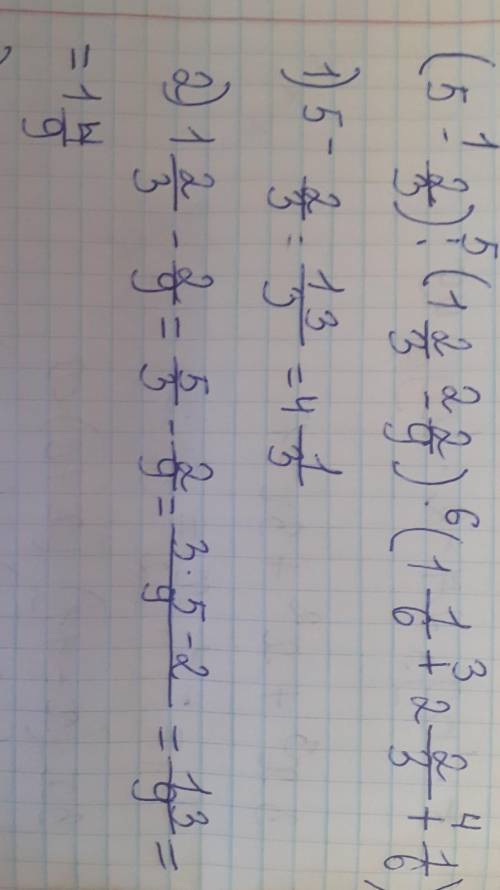 1 5 2 6 3 4
(5 - 2/3) : (1 2/3 - 2/9) · (1 1/6 + 2 2/3 + 1/6)
1) 5 - 2/3 = 13/3 = 4 1/3
2) 1 2/3 - 2/9 = 5/3 - 2/9 = 3·5-2/9 = 13/9 =
= 1 4/9